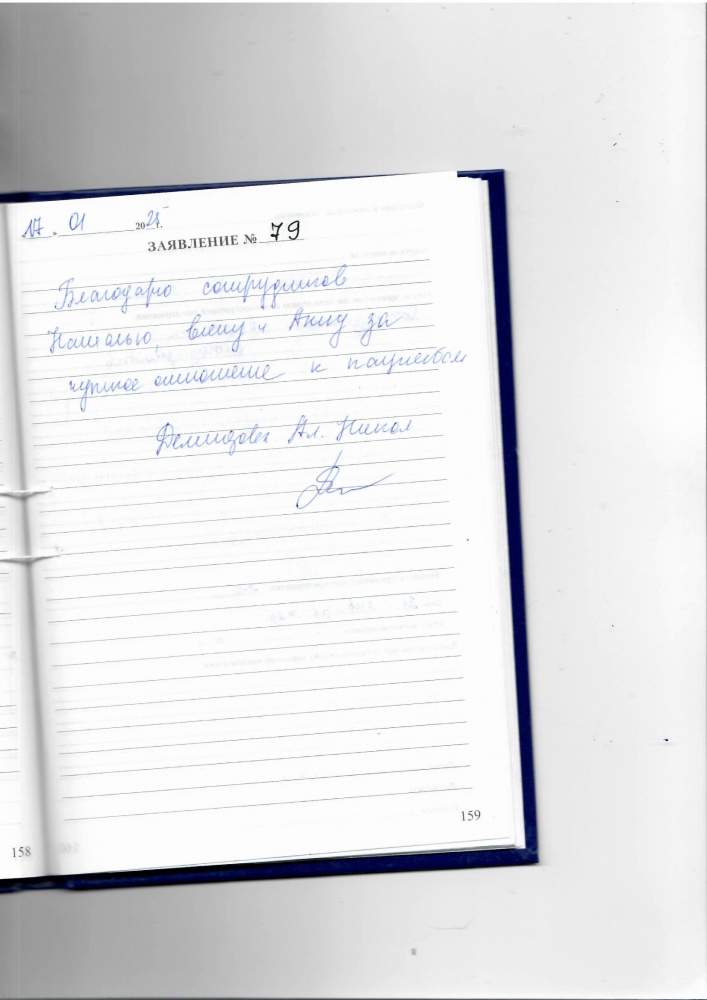 17 " 01 2025 г.
ЗАЯВЛЕНИЕ № 79
Благодарю сотрудников
Наталью, Елену и Анну за
чуткое отношение к пациентам
Демидова Ал. Никол
158
159